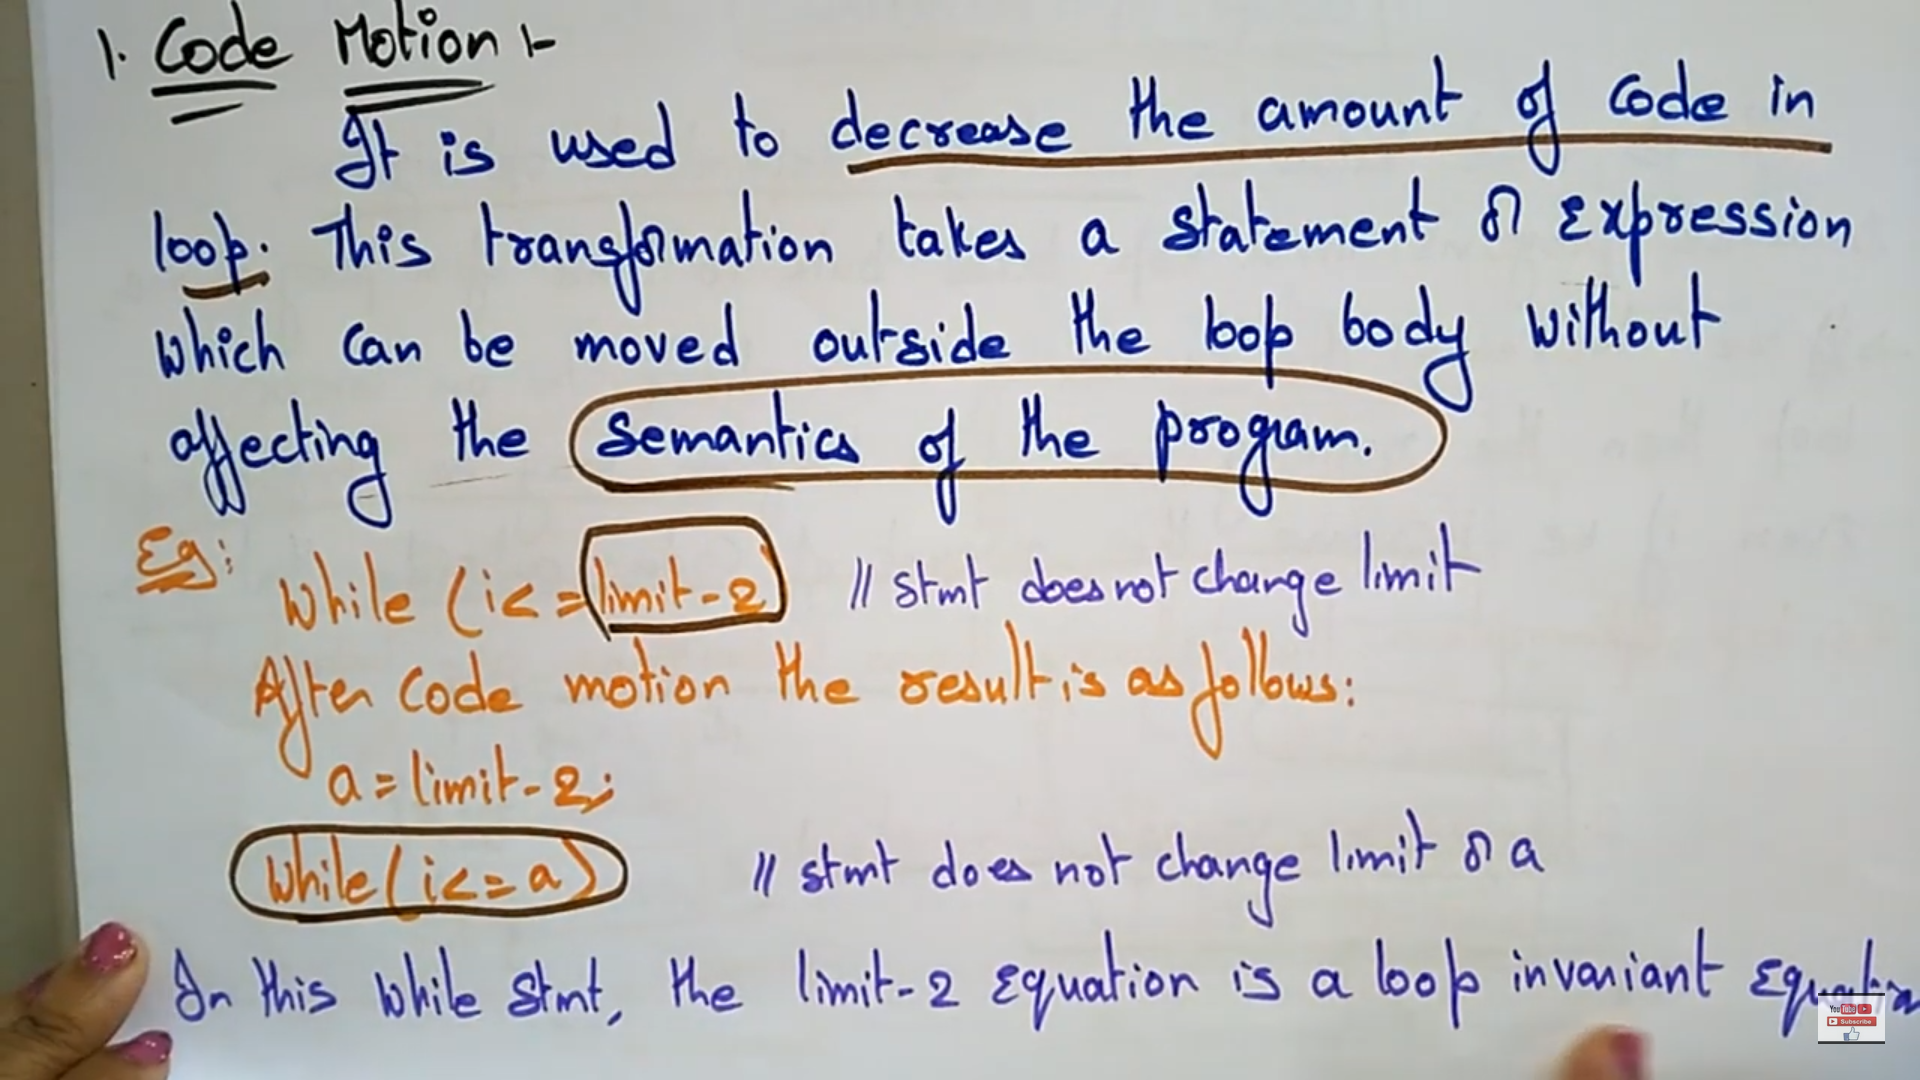 1. Code Motion :-
It is used to decrease the amount of code in
loop. This transformation takes a statement or expression
which can be moved outside the loop body without
affecting the semantics of the program.
Eg:
while (i<=limit-2) // stmt does not change limit
After code motion the result is as follows:
a=limit-2;
while(i<=a) // stmt does not change limit or a
In this while stmt, the limit-2 equation is a loop invariant equation
YouTube
Subscribe